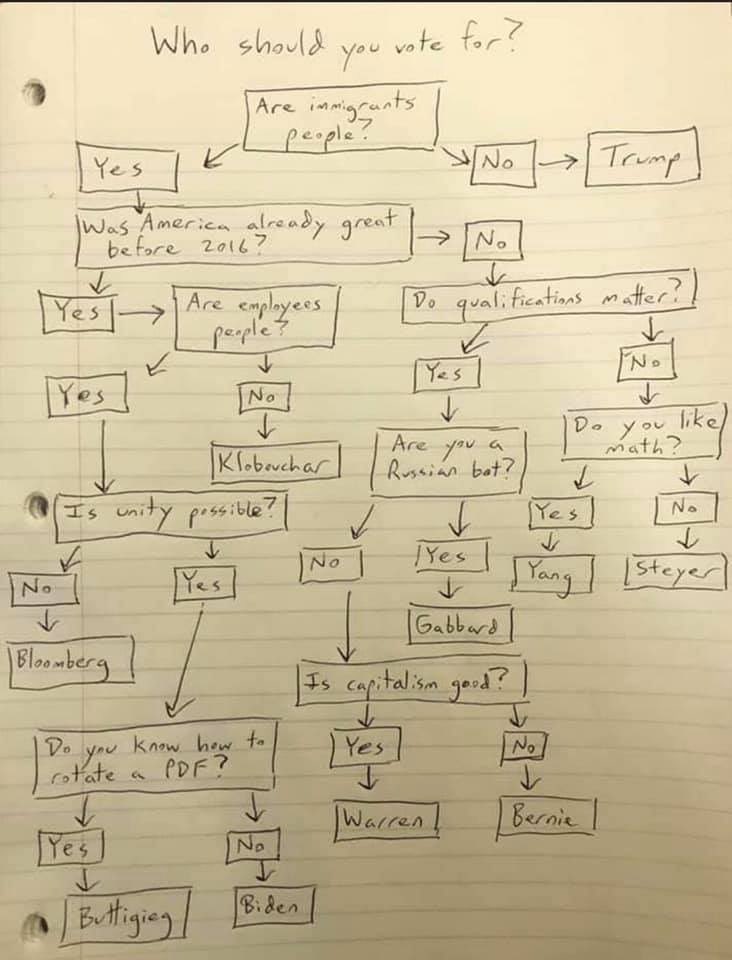 Who should you vote for?
Are immigrants
people?
Yes
No
Trump
Was America already great
before 2016?
No
Yes
Are employees
people?
Do qualifications matter?
Yes
No
Yes
No
Klobouchar
Are you a
Russian bot?
Do you like
math?
Is unity possible?
No
Yes
Yes
No
No
Yes
Yang
Steyer
Bloomberg
Gabbard
Is capitalism good?
Do you know how to
rotate a PDF?
Yes
No
Warren
Bernie
Yes
No
Buttigieg
Biden